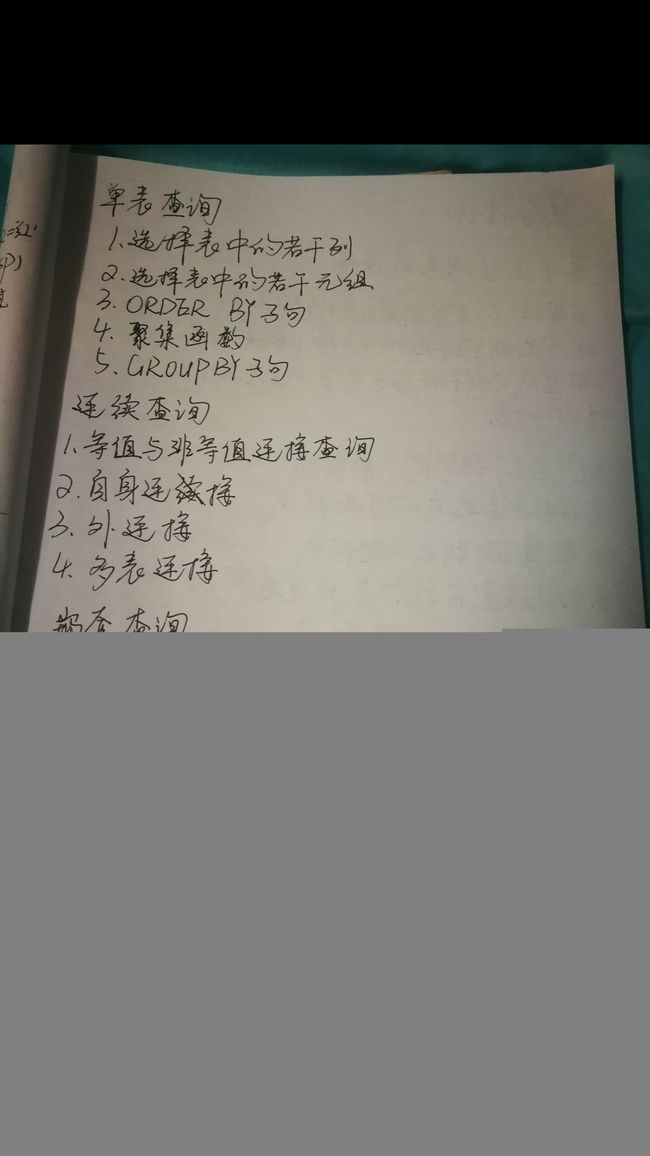 单表查询
1.选择表中的若干列
2.选择表中的若干元组
3.ORDER BY子句
4.聚集函数
5.GROUPBY子句
连续查询
1.等值与非等值连接查询
2.自身连接
3.外连接
4.多表连接
嵌套查询